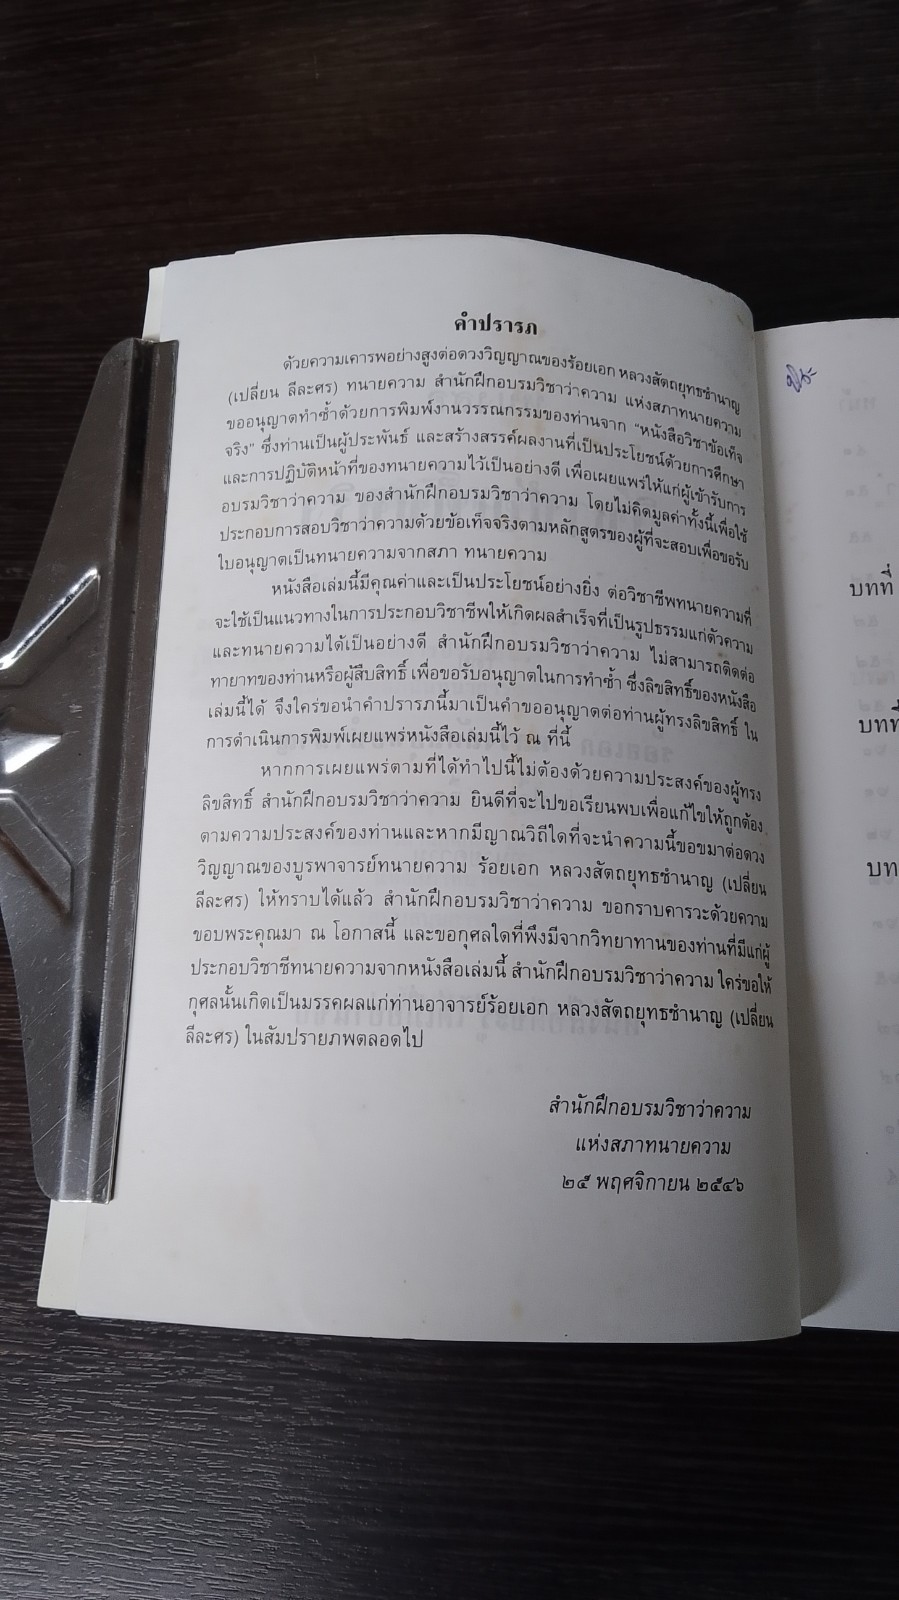 คำปรารภ
ด้วยความเคารพอย่างสูงต่อดวงวิญญาณของร้อยเอก หลวงสัตถยุทธชำนาญ
(เปลี่ยน ลีละศร) ทนายความ สำนักฝึกอบรมวิชาว่าความ แห่งสภาทนายความ
ขออนุญาตทำซ้ำด้วยการพิมพ์งานวรรณกรรมของท่านจาก "หนังสือวิชาข้อเท็จ
จริง" ซึ่งท่านเป็นผู้ประพันธ์ และสร้างสรรค์ผลงานที่เป็นประโยชน์ด้วยการศึกษา
และการปฏิบัติหน้าที่ของทนายความไว้เป็นอย่างดี เพื่อเผยแพร่ให้แก่ผู้เข้ารับการ
อบรมวิชาว่าความ ของสำนักฝึกอบรมวิชาว่าความ โดยไม่คิดมูลค่าทั้งนี้เพื่อใช้
ประกอบการสอบวิชาว่าความด้วยข้อเท็จจริงตามหลักสูตรของผู้ที่จะสอบเพื่อขอรับ
ใบอนุญาตเป็นทนายความจากสภา ทนายความ
หนังสือเล่มนี้มีคุณค่าและเป็นประโยชน์อย่างยิ่ง ต่อวิชาชีพทนายความที่
จะใช้เป็นแนวทางในการประกอบวิชาชีพให้เกิดผลสำเร็จที่เป็นรูปธรรมแก่ตัวความ
และทนายความได้เป็นอย่างดี สำนักฝึกอบรมวิชาว่าความ ไม่สามารถติดต่อ
ทายาทของท่านหรือผู้สืบสิทธิ์ เพื่อขอรับอนุญาตในการทำซ้ำ ซึ่งลิขสิทธิ์ของหนังสือ
เล่มนี้ได้ จึงใคร่ขอนำคำปรารภนี้มาเป็นคำขออนุญาตต่อท่านผู้ทรงลิขสิทธิ์ ใน
การดำเนินการพิมพ์เผยแพร่หนังสือเล่มนี้ไว้ ณ ที่นี้
หากการเผยแพร่ตามที่ได้ทำไปนี้ไม่ต้องด้วยความประสงค์ของผู้ทรง
ลิขสิทธิ์ สำนักฝึกอบรมวิชาว่าความ ยินดีที่จะไปขอเรียนพบเพื่อแก้ไขให้ถูกต้อง
ตามความประสงค์ของท่านและหากมีญาณวิถีใดที่จะนำความนี้ขอขมาต่อดวง
วิญญาณของบูรพาจารย์ทนายความ ร้อยเอก หลวงสัตถยุทธชำนาญ (เปลี่ยน
ลีละศร) ให้ทราบได้แล้ว สำนักฝึกอบรมวิชาว่าความ ขอกราบคารวะด้วยความ
ขอบพระคุณมา ณ โอกาสนี้ และขอกุศลใดที่พึงมีจากวิทยาทานของท่านที่มีแก่ผู้
ประกอบวิชาชีทนายความจากหนังสือเล่มนี้ สำนักฝึกอบรมวิชาว่าความ ใคร่ขอให้
กุศลนั้นเกิดเป็นมรรคผลแก่ท่านอาจารย์ร้อยเอก หลวงสัตถยุทธชำนาญ (เปลี่ยน
ลีละศร) ในสัมปรายภพตลอดไป
สำนักฝึกอบรมวิชาว่าความ
แห่งสภาทนายความ
๒๕ พฤศจิกายน ๒๕๔๖
บทที่
บทที่
บท